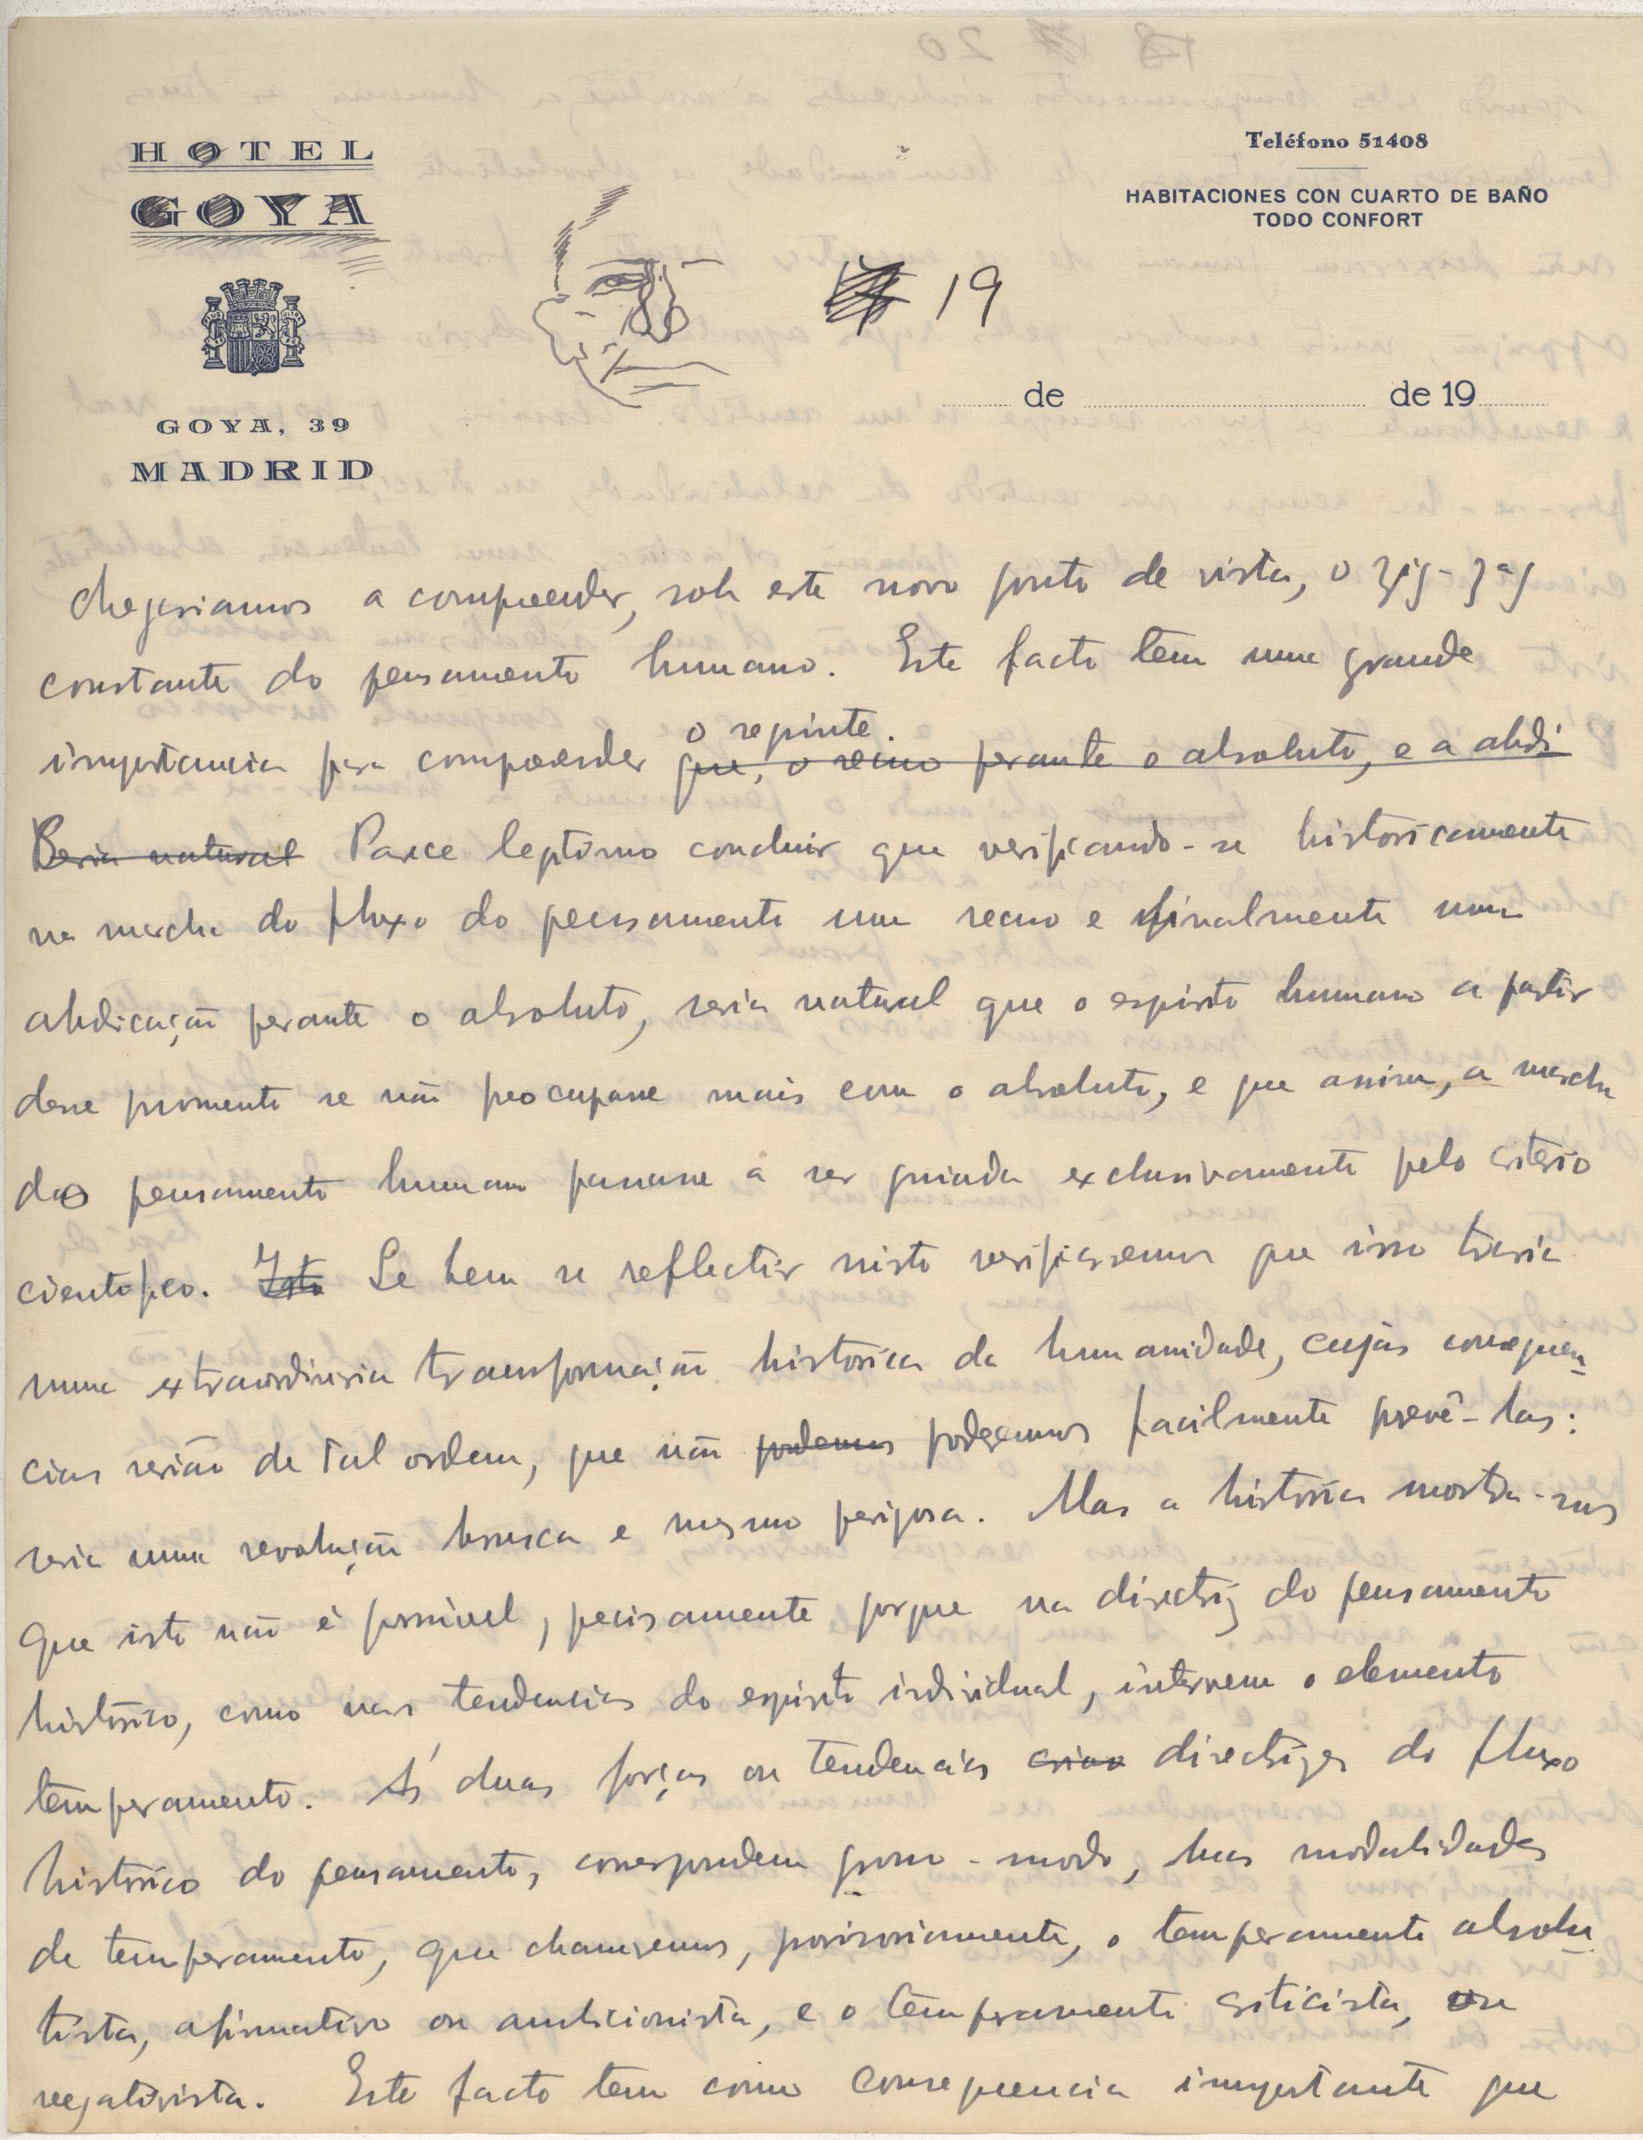 HOTEL
GOYA
GOYA, 39
MADRID
Teléfono 51408
HABITACIONES CON CUARTO DE BAÑO
TODO CONFORT
19
de de 19
chegariamos a compreender, sob este novo ponto de vista, o zig-zag
constante do pensamento humano. Este facto tem uma grande
importancia para compreender o seguinte.
que, o recuo perante o absoluto, e a abdi
Seria natural Parece legitimo concluir que verificando-se historicamente
na marcha do fluxo do pensamento um recuo e finalmente uma
abdicação perante o absoluto, seria natural que o espirito humano a partir
desse momento se não preocupasse mais com o absoluto, e que assim, a marcha
do pensamento humano passasse a ser guiada exclusivamente pelo criterio
cientifico. Isto Se bem se reflectir nisto verificaremos que isso traria
uma extraordinaria transformação historica da humanidade, cujas consequen-
cias serião de tal ordem, que não podemos poderemos facilmente prevê-las:
seria uma revolução brusca e mesmo perigosa. Mas a historia mostra-nos
que isto não é possivel, precisamente porque na directriz do pensamento
historico, como nas tendencias do espirito individual, intervem o elemento
temperamento. Ás duas forças ou tendencias directrizes do fluxo
historico do pensamento, correspondem grosso-modo, duas modalidades
de temperamento, que chamaremos, provisoriamente, o temperamento absolu
tista, afirmativo ou ambicionista, e o temperamento criticista, ou
negativista. Este facto tem como consequencia importante que